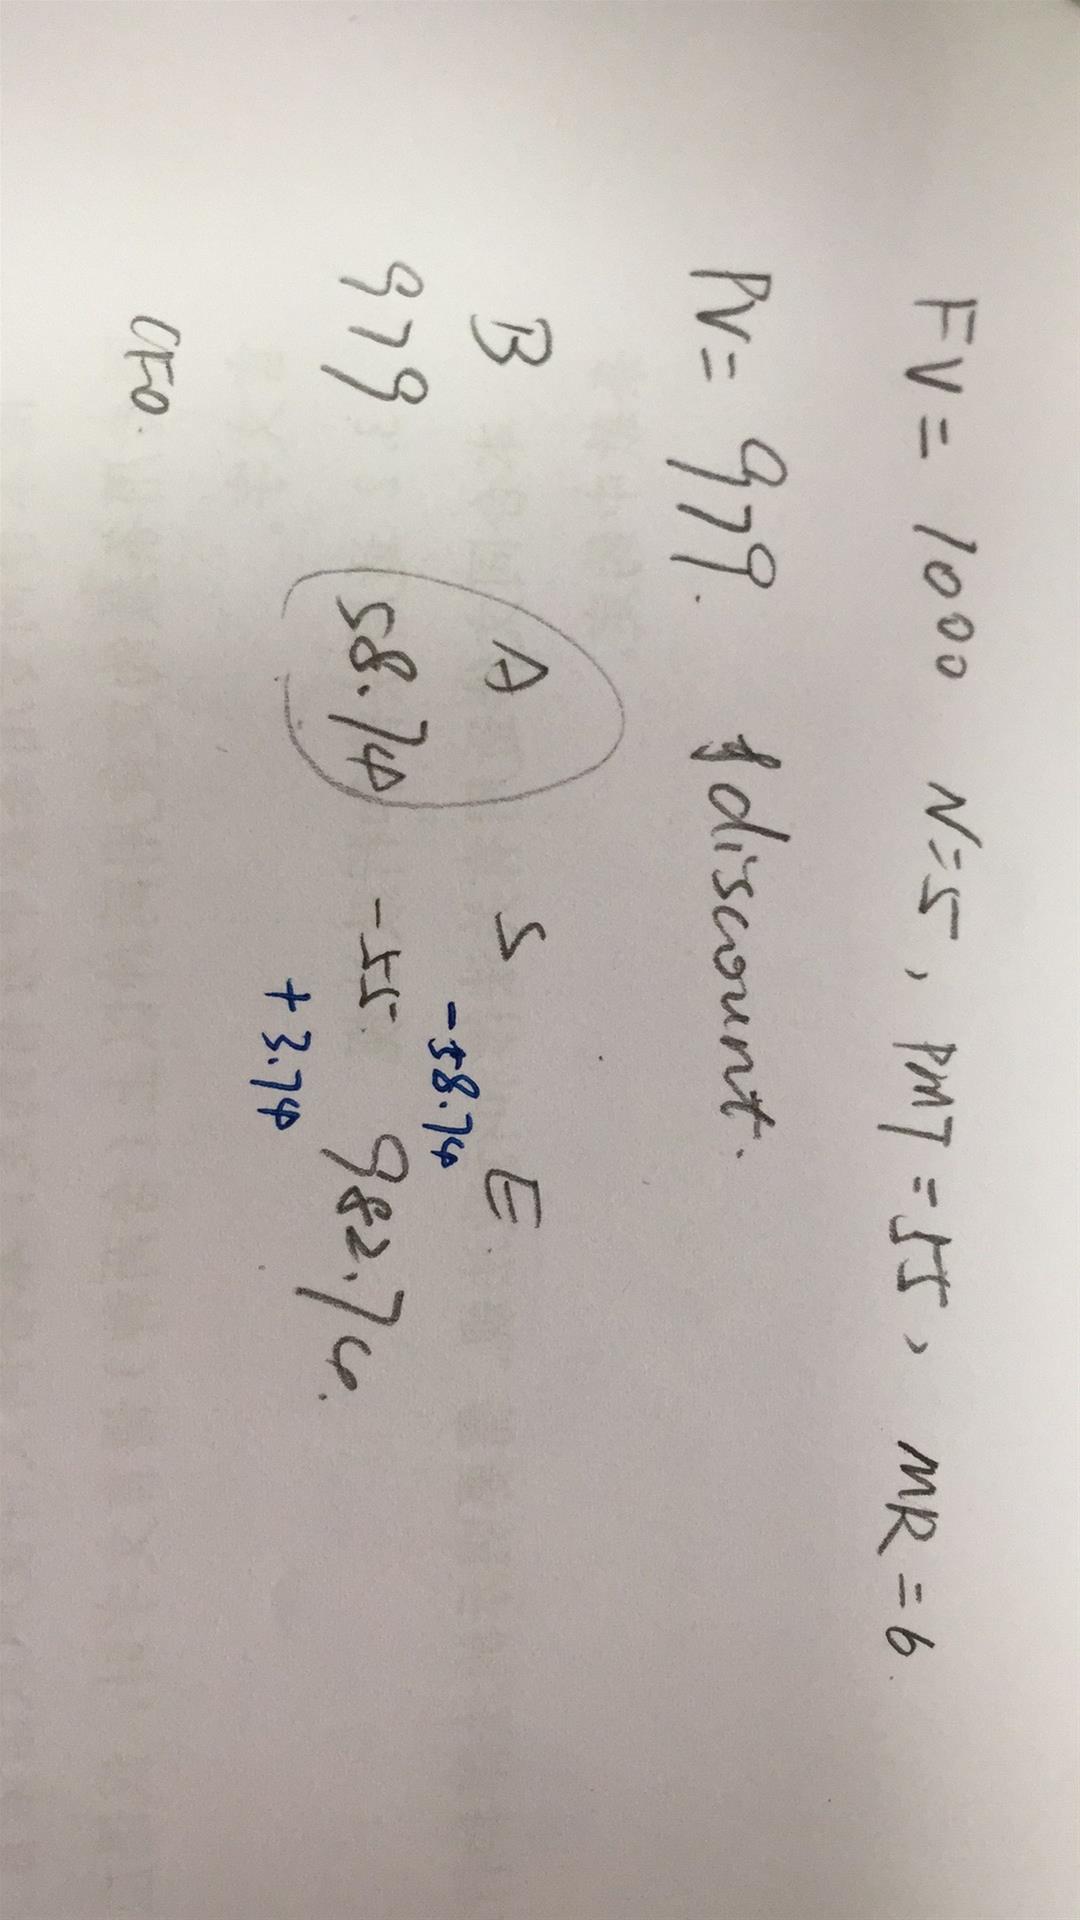 FV = 1000 N=5, PMT=55, MR=6.
PV= 979. discount.
B A S E
-58.74
979 58.74 -55. 982.74.
+3.74
CFO.